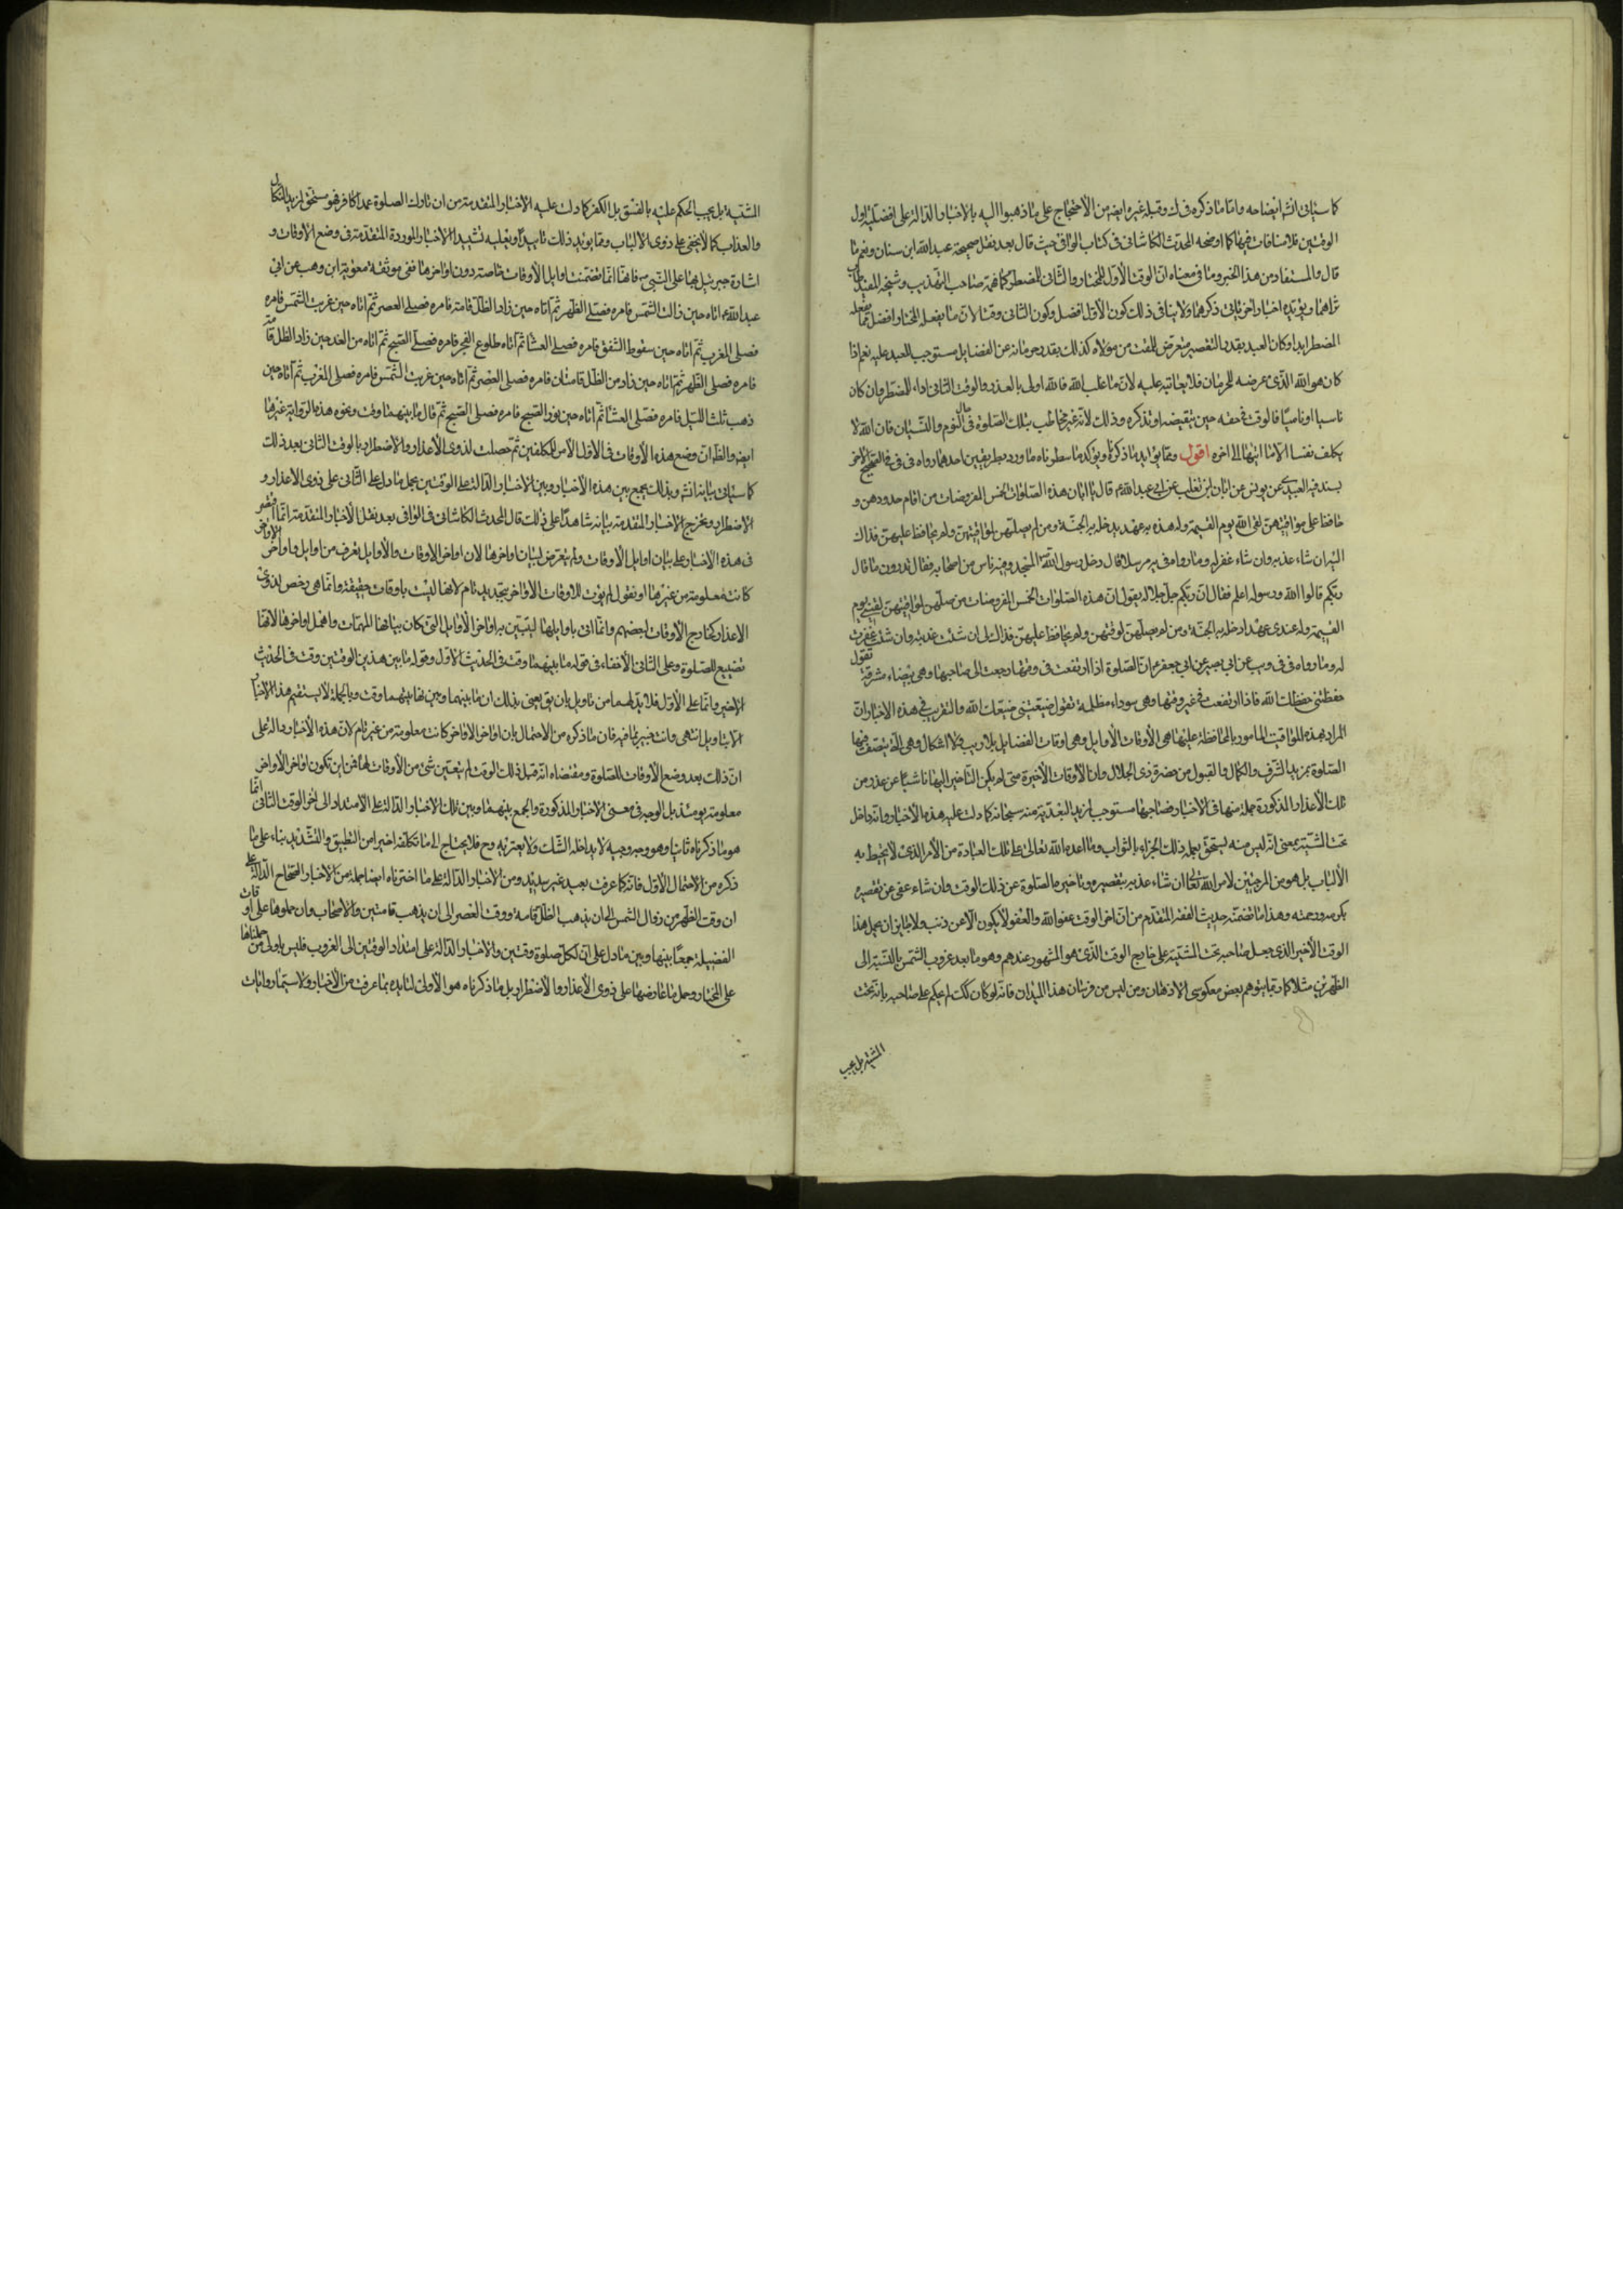 كما سيأتي انشا ايضاحه واما ما ذكره في ك وقبله غيره ايضه من الأحتجاج على ما ذهبوا اليه بالاخبار الدالة على افضلية اول
الوقتين فلا منافات فيها كما اوضحه المحدث الكاشاني في كتاب الوافي حيث قال بعد نقل صحيحة عبد الله ابن سنان ونعم ما
قال والمستفاد من هذا الخبر وما في معناه انّ الوقت الأول للمختار والثاني للمضطر كما فهمه صاحب التهذيب وشيخه المفيد طاب
ثراهما ويؤيده اخبار اخر ياتي ذكرهما ولا ينافي ذلك كون الأوّل افضل وكون الثاني وقتا لانّ ما يفعله المختار افضل مما يفعله
المضطر ابدا وكان العبد بقدر التقصير متعرض للمقت من مولاه كذلك بقدر حرمانه عن الفضايل مستوجب للبعد عليه نعم اذا
كان هو الله الذي عرضه للحرمان فلا يعاتبه عليه لانّ ما غلب الله فالله اولى بالعذر والوقت الثاني اداء للمضطر وان كان
ناسيا او ناميا فالوقت في حقه حين يتقيضه او تذكره وذلك لأنه غير مخاطب بتلك الصلوة في حال النوم والنسيان فان الله لا
يكلف نفسا الا ما اتيها الى اخره اقول ومما يؤيد ما ذكرنا ويؤكد ما سطرناه ما ورد بطريقين احدهما رواه في في في الصحيح الاخر
بسند فيه العبيدي عن يونس عن ابان ابن تغلب عن ابي عبد الله ع قال يا ابان هذه الصلوات الخمس المفروضات من اقام حدودهن و
حافظ على مواقيتهن لقي الله يوم القيمة وله هذه به عهد يدخله به الجنة ومن لم يصلهن لمواقيتهن ولم يحافظ عليهن فذاك
اليه ان شاء عذبه وان شاء غفر له وما رواه في يه مرسلا قال دخل رسول الله المسجد وفيه ناس من اصحابه فقال تدرون ما قال
ربكم قالوا الله ورسوله اعلم فقال انّ ربكم جل جلاله يقول انّ هذه الصلوات الخمس المفروضات من صلهن لمواقيتهن لقيني يوم
القيمة وله عندي عهد ادخله به الجنة ومن لم يصلهن لوقتهن ولم يحافظ عليهن فذلك الى ان شئت عذبته وان شئت غفرت
له وما رواه في في ويب عن ابي بصير عن ابي جعفر ع ان الصلوة اذا ارتفعت في وقتها رجعت الى صاحبها وهي بيضاء مشرقة تقول
حفظتني حفظك الله فاذا ارتفعت في غير وقتها وهي سوداء مظلمة تقول ضيعتني ضيعك الله والتقريب في هذه الاخبار انّ
المراد بهذه المواقيت المامور بالمحافظة عليها هي الأوقات الأوايل وهي اوقات الفضايل بلا ريب ولا اشكال وهي التي يتصف فيها
الصلوة بمزيد الشرف والكمال والقبول من حضرة ذي الجلال وان الأوقات الأخيرة متى لم يكن التأخير اليها ناشيا عن عذر من
تلك الأعذار المذكورة جملة منها في الاخبار فصاحبها مستوجب لمزيد البعد منه سبحانه كما دلت عليه هذه الأخبار وانه داخل
تحت المشية بمعنى انّه ليس منه يستحق بعمله ذلك الجزاء بالثواب وما اعده الله تعالى على تلك العبادة من الأمر الذي لا يحيط به
الألباب بل هو من المرجئين لامر الله تعالى ان شاء عذبه بتقصيره وتأخيره الصلوة عن ذلك الوقت وان شاء عفى عن تقصيره
بكرمه ورحمته وهذا ما تضمنه حديث الفقه المتقدم من انّ اخر الوقت عفو الله والعفو لا يكون الا عن ذنب ولا جايز ان يحمل هذا
الوقت الأخير الذي جعل صاحبه تحت المشية على خارج الوقت الذي هو المشهور عندهم وهو ما بعد غروب الشمس بالنسبة الى
الظهرين مثلا كما ربما يتوهم بعض معكوسي الاذهان ومن ليس من فرسان هذا الميدان فانه لو كان كك لم يحكم على صاحبه بانه تحت
المشية بل يجب
المشية بل يجب الحكم عليه بالفسق بل الكفر كما دلت عليه الاخبار المتقدمة من ان تارك الصلوة عمدا كافر فهو مستحق لمزيد النكال
والعذاب كما لا يخفى على ذوى الألباب ومما يؤيد ذلك تاييدا ويعليه تشييدا الاخبار الموردة المتقدمة في وضع الاوقات و
اشارة جبرئيل بها على النبي ص فانها انّما تضمنت اوايل الأوقات خاصة دون اواخرها ففي موثقة معوية ابن وهب عن ابي
عبد الله ع اتاه حين زالت الشمس فامره فصلى الظهر ثم اتاه حين زاد الظل قامة فامره فصلى العصر ثم اتاه حين غربت الشمس فامره
فصلى المغرب ثم اتاه حين سقوط الشفق فامره فصلى العشا ثم اتاه طلوع الفجر فامره فصلى الصبح ثم اتاه من الغد حين زاد الظل قامة
فامره فصلى الظهر ثم اتاه حين زاد من الظل قامتان فامره فصلى العصر ثم اتاه حين غربت الشمس فامره فصلى المغرب ثم اتاه حين
ذهب ثلث الليل فامره فصلى العشا ثم اتاه حين نور الصبح فامره فصلى الصبح ثم قال ما بينهما وقت ونحوه هذه الرواية غيرها
ايضه والظ ان وضع هذه الأوقات في الأول الأمر للمكلفين ثم حصلت لذوى الأعذار والاضطرار بالوقت الثاني بعد ذلك
كما سيأتي بيانه انش وبذلك يجمع بين هذه الأخبار وبين الاخبار الدالة على الوقتين بحمل ما دل على الثاني على ذوى الاعذار و
الاضطرار ويخرج الاخبار المتقدمة بيانه شاهدا على ذلك قال المحدث الكاشاني في الوافي بعد نقل الأخبار المتقدمة انما اقتصر
في هذه الاخبار على بيان اوايل الأوقات ولم يتعرض لبيان اواخرها لان اواخر الاوقات والأوايل يعرف من اوايل واواخر الاواخر
كانت معلومة من غيرها او نقول لم يؤت للاوقات الاواخر بتجديد تام لانها ليست باوقات حقيقة وانما هي رخص لذوى
الاعذار كخارج الأوقات لبعضهم وانما اتى باوايلها ليتبين به اواخر الأوايل التي كان بيانها المهمّات واهمل اواخرها لانها
تضييع للصلوة وعلى الثاني الأخفاء في قوله ما بينهما وقت في الحديث الاول وقوله ما بين هذين الوقتين وقت في الحديث
الاخير واما على الأول فلا بد لهما من تاويل بان يق يعني بذلك ان ما بينهما وبين نهايتهما وقت وبالجملة لا يستقيم هذا الأخبار
الا بتاويل انتهى وانت خبير بما فيه فان ما ذكره من الاحتمال بان اواخر الاواخر كانت معلومة من غير تام لان هذه الأخبار دالة على
ان ذلك بعد وضع الأوقات للصلوة ومقتضاه انه قبل ذلك الوقت لم يتعين شئ من الأوقات لها فمن اين تكون اواخر الأواخر
معلومة يومئذ بل الوجه في معنى الاخبار المذكورة والجمع بينهما وبين تلك الاخبار الدالة على الامتداد الى اخر الوقت الثاني انما
هو ما ذكرناه ثانيا وهو وجه وجيه لا يداخله الشك ولا يعتريه وح فلا يحتاج الى ما تكلفه اخيرا من التطبيق والتشديد بناء على ما
ذكره من الاحتمال الأول فانه كما عرفت بعيد غير سديد ومن الاخبار الدالة على ما اخترناه ايضا جملة من الاخبار الصحاح الدالة على
ان وقت الظهر من زوال الشمس الى ان يذهب الظل قامة ووقت العصر الى ان يذهب قامتين والاصحاب وان حملوها على اوقات
الفضيلة جمعا بينها وبين ما دل على ان لكل صلوة وقتين والاخبار الدالة على امتداد الوقتين الى الغروب فليس باولى من حملناها
على المختار وحمل ما عارضها على ذوى الأعذار والأضطرار بل ما ذكرناه هو الأولى لتايده بما عرفت من الأخبار ولا سيما روايات